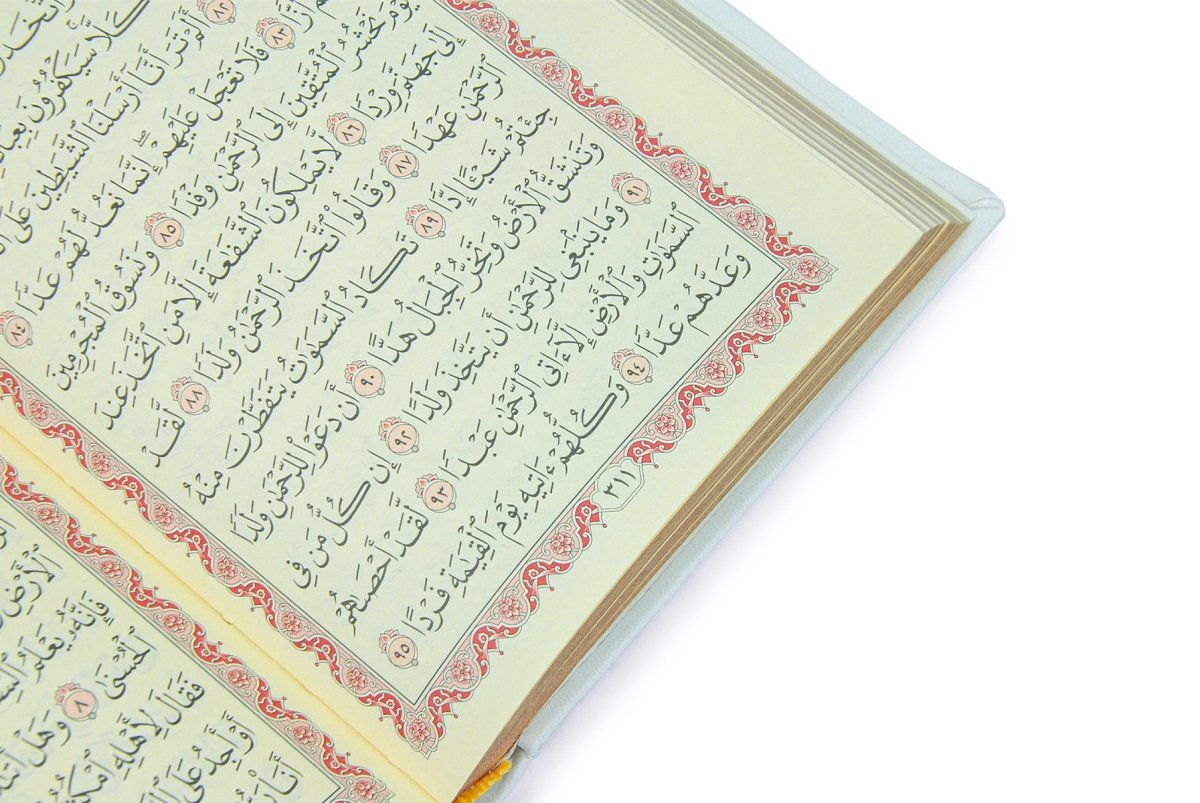 كَلَّا سَيَكْفُرُونَ
٨٢ أَلَمْ تَرَ أَنَّا أَرْسَلْنَا ٱلشَّيَٰطِينَ عَلَى
أَزًّا ٨٣ فَلَا تَعْجَلْ عَلَيْهِمْ إِنَّمَا نَعُدُّ لَهُمْ عَدًّا ٨٤
يَوْمَ نَحْشُرُ ٱلْمُتَّقِينَ إِلَى ٱلرَّحْمَٰنِ وَفْدًا ٨٥ وَنَسُوقُ ٱلْمُجْرِمِينَ
إِلَىٰ جَهَنَّمَ وِرْدًا ٨٦ لَّا يَمْلِكُونَ ٱلشَّفَٰعَةَ إِلَّا مَنِ ٱتَّخَذَ عِندَ
ٱلرَّحْمَٰنِ عَهْدًا ٨٧ وَقَالُوا۟ ٱتَّخَذَ ٱلرَّحْمَٰنُ وَلَدًا ٨٨ لَّقَدْ
جِئْتُمْ شَيْـًٔا إِدًّا ٨٩ تَكَادُ ٱلسَّمَٰوَٰتُ يَتَفَطَّرْنَ مِنْهُ
وَتَنشَقُّ ٱلْأَرْضُ وَتَخِرُّ ٱلْجِبَالُ هَدًّا ٩٠ أَن دَعَوْا۟ لِلرَّحْمَٰنِ وَلَدًا
٩١ وَمَا يَنۢبَغِى لِلرَّحْمَٰنِ أَن يَتَّخِذَ وَلَدًا ٩٢ إِن كُلُّ مَن فِى
ٱلسَّمَٰوَٰتِ وَٱلْأَرْضِ إِلَّآ ءَاتِى ٱلرَّحْمَٰنِ عَبْدًا ٩٣ لَّقَدْ أَحْصَىٰهُمْ
وَعَدَّهُمْ عَدًّا ٩٤ وَكُلُّهُمْ ءَاتِيهِ يَوْمَ ٱلْقِيَٰمَةِ فَرْدًا ٩٥
٣١١
ٱلْأَرْضِ
فَإِنَّهُۥ يَعْلَمُ
ٱلْحُسْنَىٰ ٨ وَهَلْ
فَقَالَ لِأَهْلِهِ
أَوْ أَجِدُ عَلَى
أَنَا۠